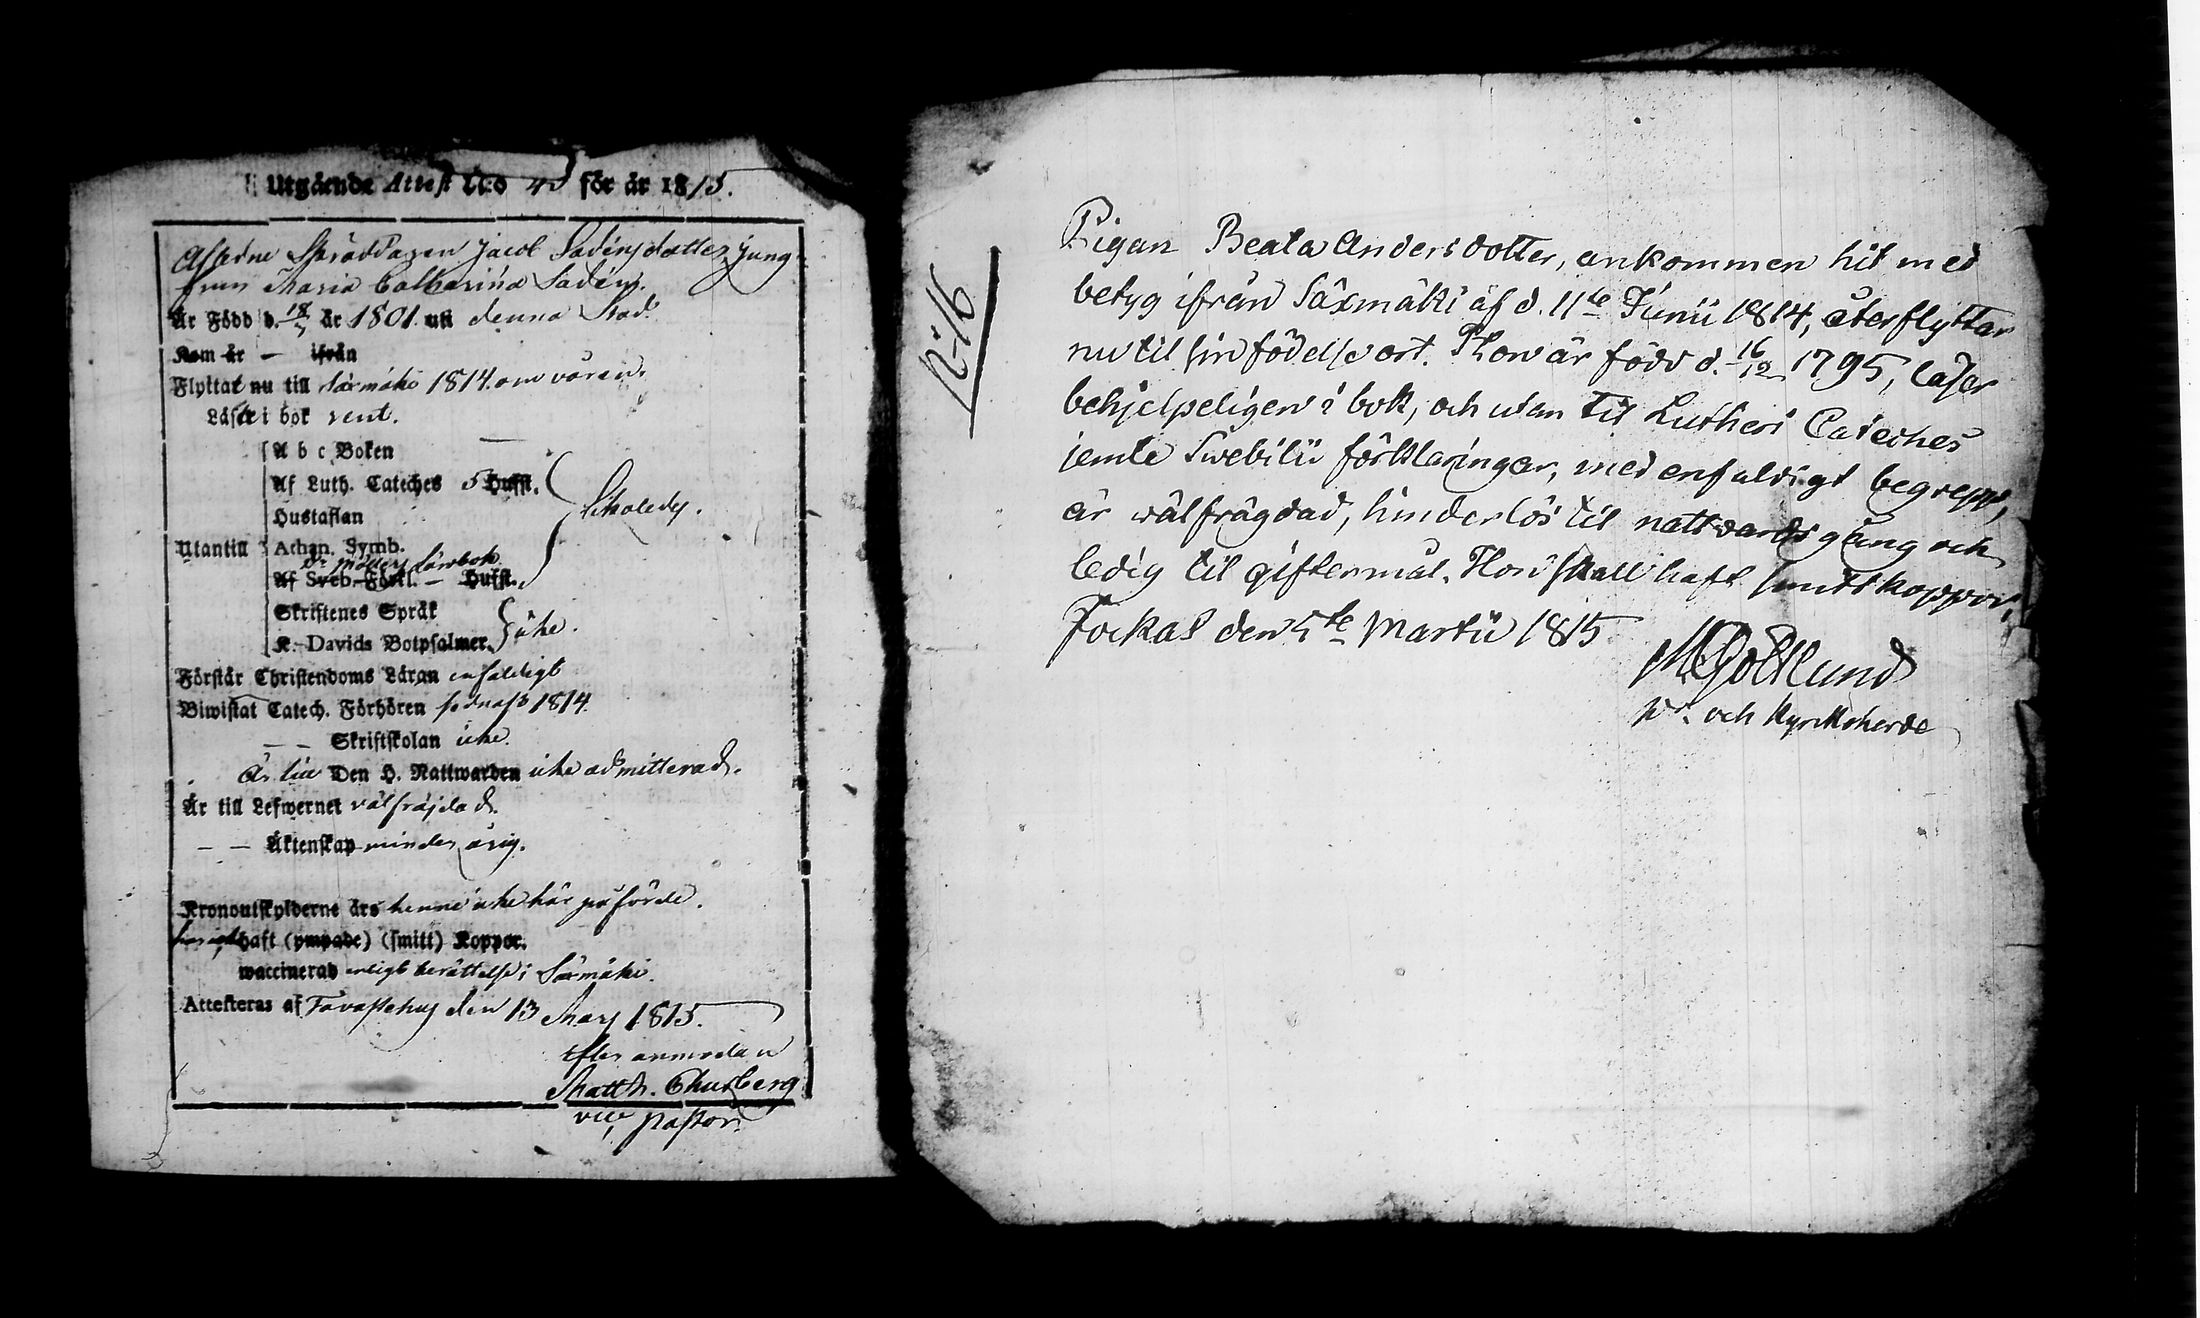 Utgående Attest No 45 för år 1815.
Afledne Skräddaren Jacob Sadéns dotter, Jung
frun Maria Catharina Sadén.
Är Född d. 18/5 år 1801. uti denna Stad
Kom år — ifrån
Flyttat nu till Säxmäki 1814. om våren.
Läser i bok rent.
A b c Boken —
Af Luth. Cateches 5 Hufst.
Hustaflan
Skoledes.
Utantill Athan. Symb.
Dr Möllers Lärobok
Af Sveb. Förkl. — Hufst.
Skriftenes Språk
K. Davids Botpsalmer.
icke.
Förstår Christendoms Läran enfaldigt
Biwistat Catech. Förhören sednast 1814.
— — Skriftskolan icke.
Är till Den H. Nattwarden icke admitterad.
Är till Lefwernet välfräjdad.
— — Äktenskap minderårig.
Kronoutskylderne ärs henne icke här påförde.
haft (ympade) (smitt) Koppor.
waccinerad enligt berättelse i Säxmäki.
Attesteras af Tavastehus den 13 Mars 1815.
Efter anmodan
Matth. Churberg
vice Pastor.
N:16
Pigan Beata Andersdotter, ankommen hit med
betyg ifrån Säxmäki af d. 11te Junii 1814, återflyttar
nu til sin födelse ort. Hon är född d. 16/12 1795, läser
behjelpeligen i bok, och utan til Lutheri Cateches
jemte Swebilii förklaringar, med enfaldigt begrepp,
är välfrägdad, hinderlös til nattvards gång och
ledig til giftermål. Hon skall haft smittkoppor.
Jockas den 5te Martii 1815
M Gottlund
Pr. och Kyrkoherde